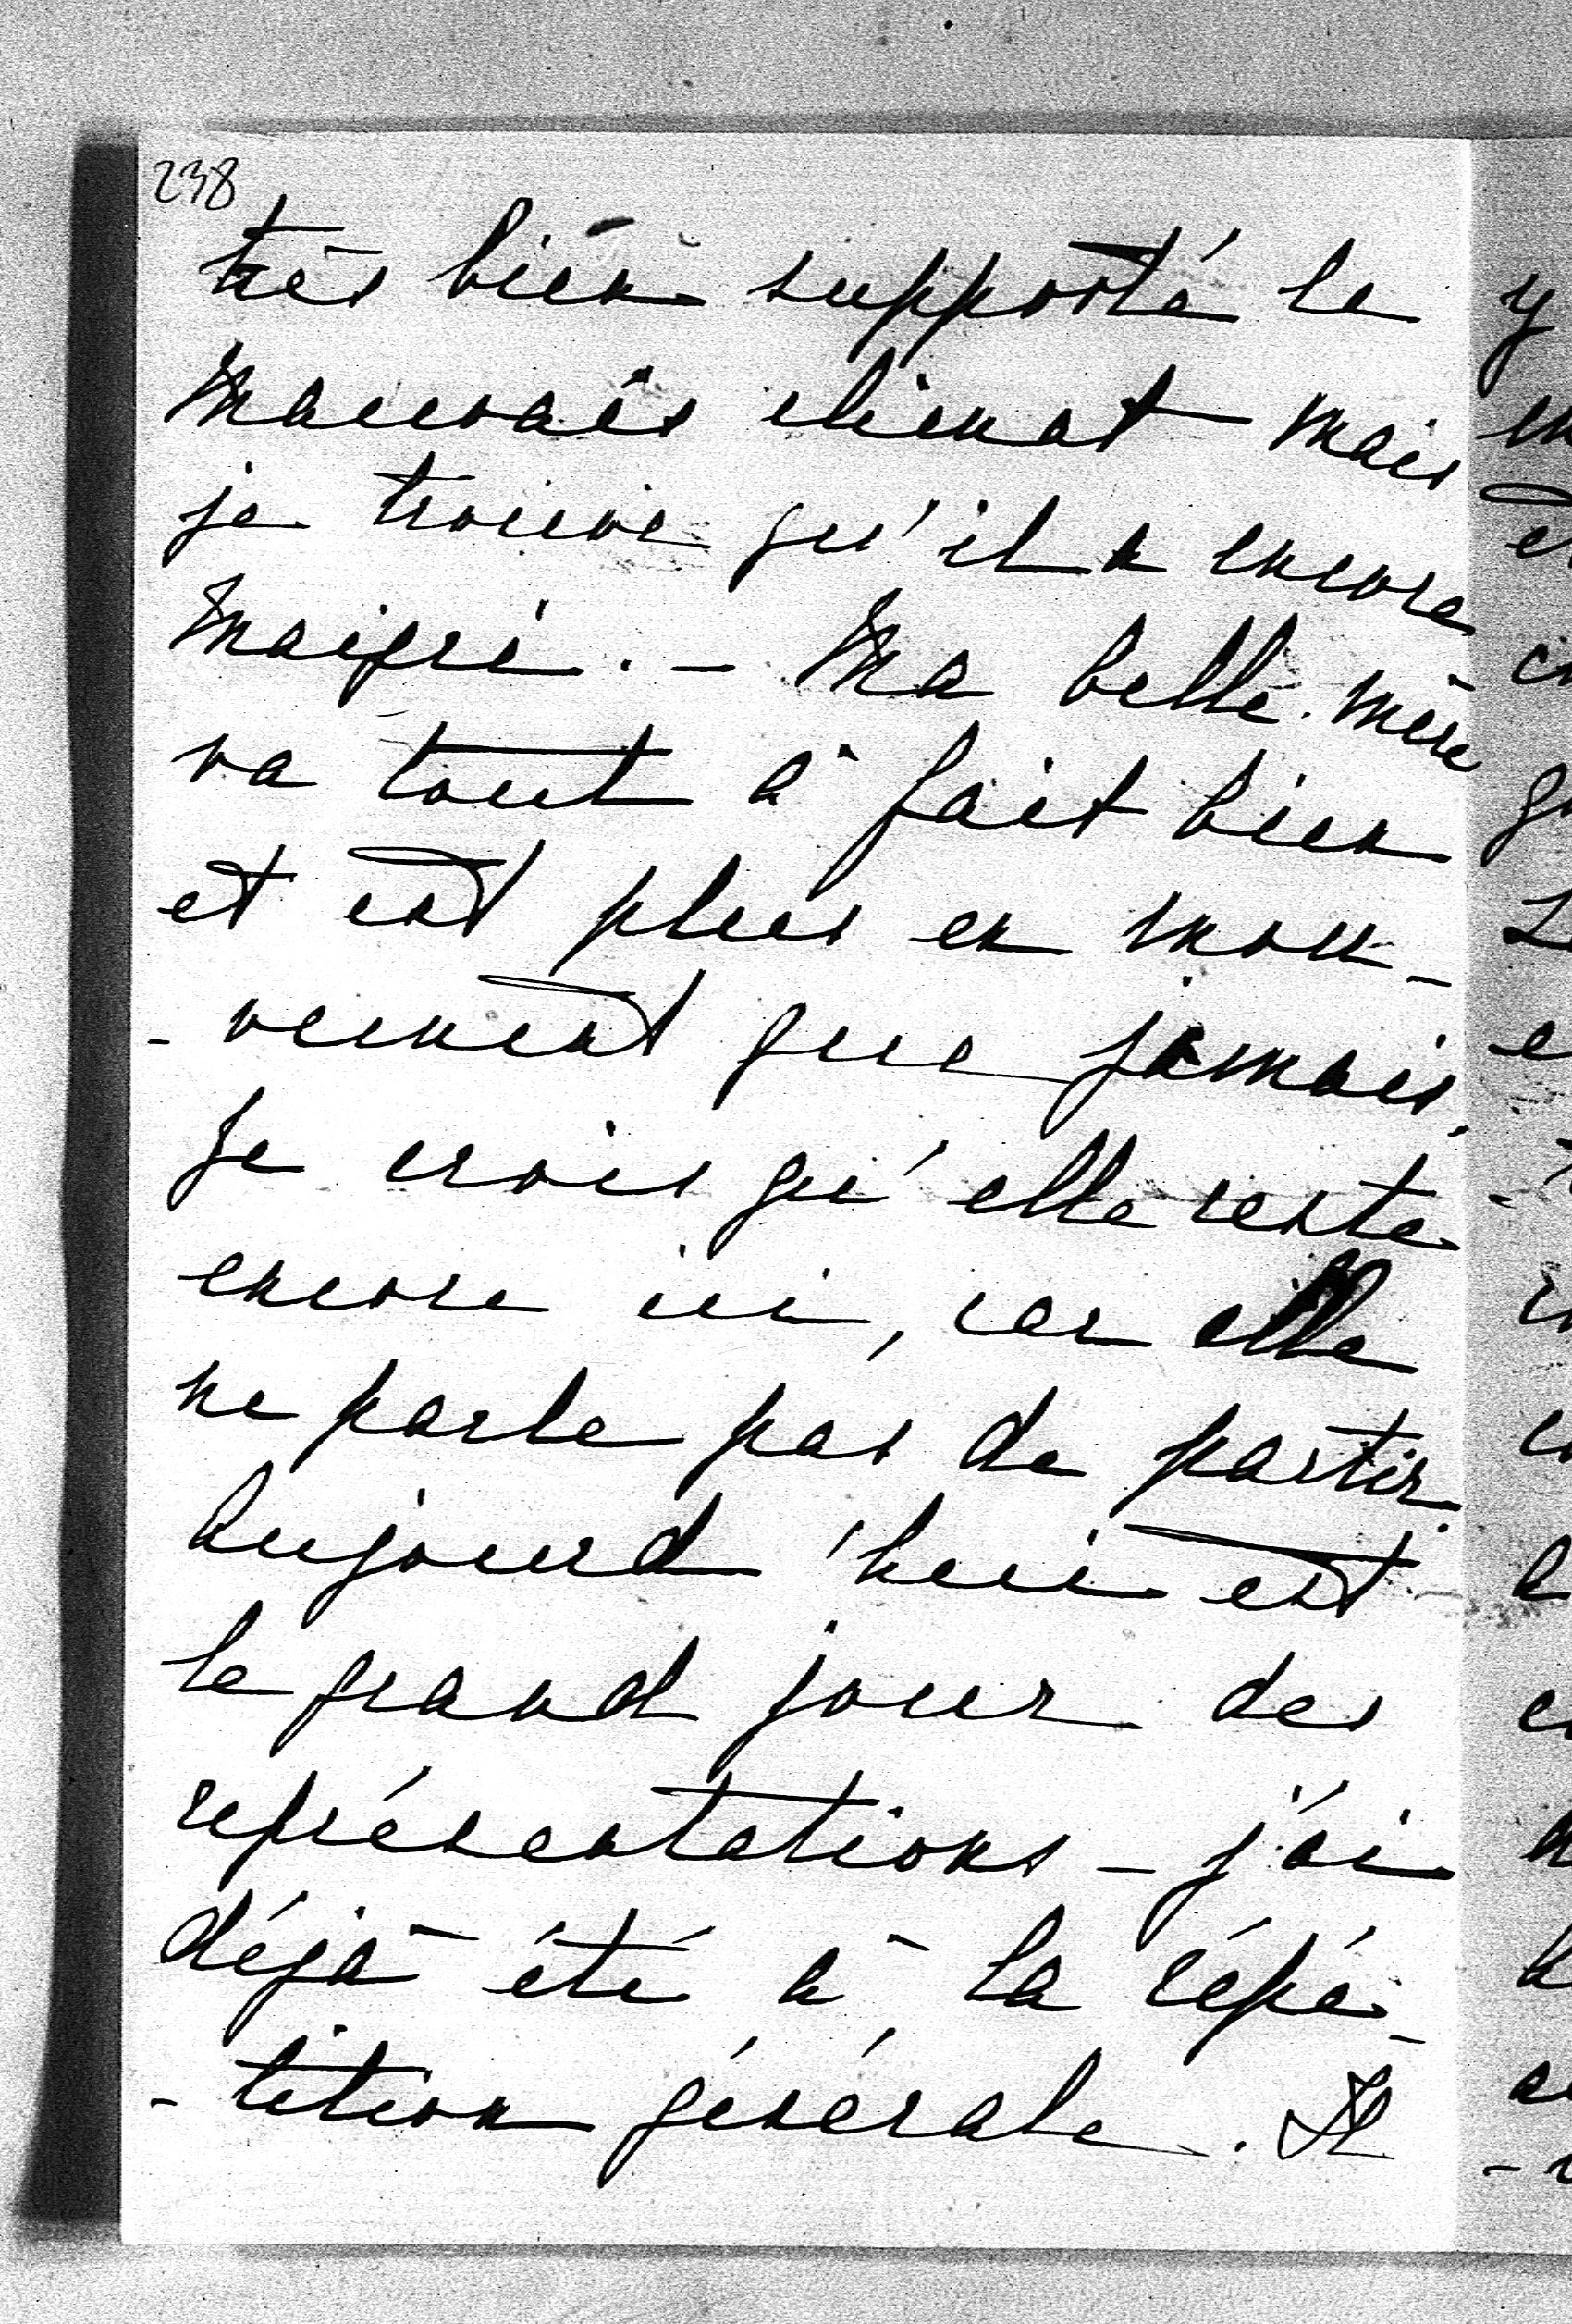 238
très bien supporté le
mauvais climat mais
je trouve qu'il a encore
maigri. - Ma belle-mère
va tout à fait bien
et est plus en mou-
-vement que jamais.
Je crois qu'elle reste
encore ici, car elle
ne parle pas de partir.
Aujourd'hui est
le grand jour des
représentations - j'ai
déjà été à la répé-
-tition générale. Il